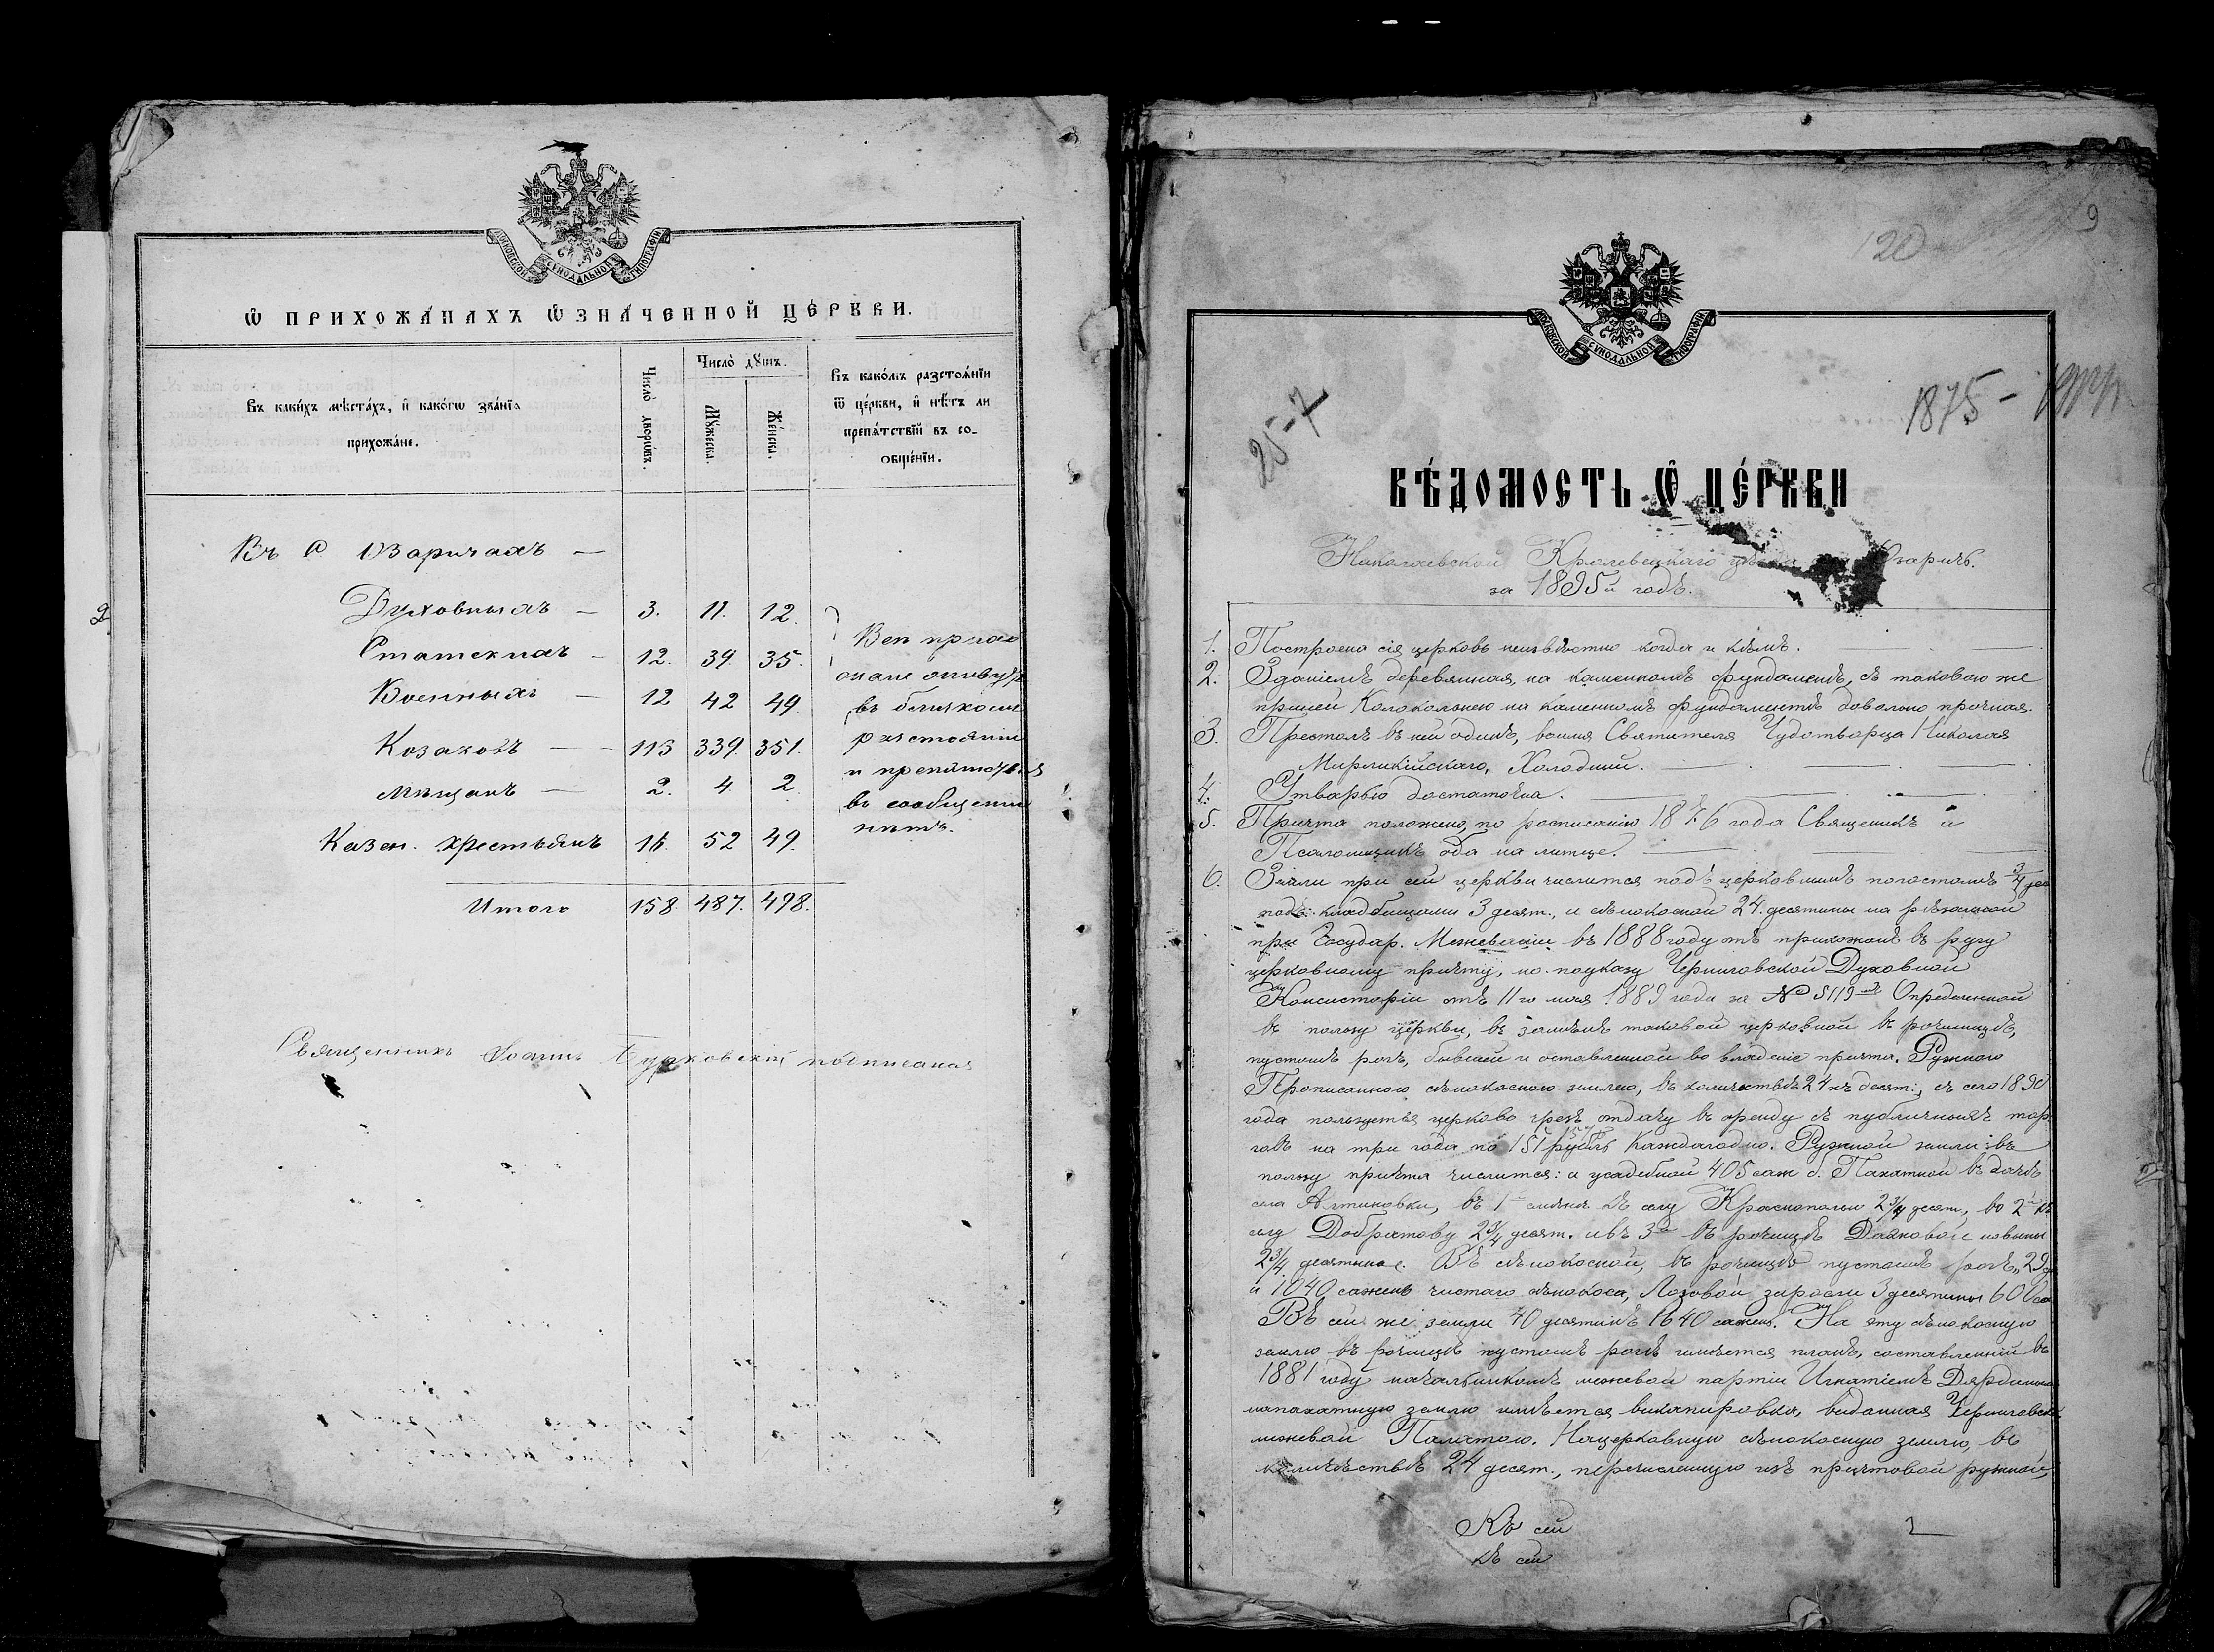 МОСКОВСКОЙ СѴНОДАЛЬНОЙ ТИПОГРАФІИ
Ѡ ПРИХОЖА́НАХЪ Ѡ҆ЗНА́ЧЕННОЙ ЦЕ́РКВИ.
Въ каки́хъ мѣста́хъ, и҆ како́гѡ зва́нїѧ
прихожа́не.
Число̀ дворѡ́въ.
Число̀ дꙋ́шъ.
Мꙋ́жеска.
Же́нска.
Въ како́мъ разстоѧ́нїи
ѿ це́ркви, и҆ нѣ́тъ ли
препѧ́тствїй въ со-
общéнїи.
Въ С Озаричахъ —
Духовныхъ — 3. 11. 12.
Статскихъ — 12. 39. 35.
Военныхъ — 12 42 49
Козаковъ — 113 339. 351.
Мѣщанъ — 2. 4. 2.
Казен. крестьянъ 16. 52 49.
Итого 158. 487. 498.
Всѣ прихо
жане живутъ
въ близкомъ
разстояніи
и препятствія
въ сообщеніи
нѣтъ.
Священникъ Іоаннъ подписалъ
9
20
МОСКОВСКОЙ СѴНОДАЛЬНОЙ ТИПОГРАФІИ
25-7
1875 -
ВѢ́ДОМОСТЬ Ѡ ЦЕ́РКВИ
Николаевской Кролевецкаго уѣзда Озаричъ.
за 1895й годъ.
1. Построена сія церковь неизвѣстно когда и кѣмъ.
2. Зданіемъ деревянная, на каменномъ фундаментѣ, съ таковою же
при ней Колокольнею на каменномъ фундаментѣ довольно прочная.
3. Престолъ въ ней одинъ, во имя Святителя Чудотворца Николая
Мирликійскаго, Холодный.
4. Утварью достаточна.
5. Причта положено, по росписанію 1876 года Священникъ и
Псаломщикъ оба на лицо.
6. Земли при сей церкви числится подъ церковнымъ погостомъ 3/4 дес
подъ кладбищами 3 десят., и сѣнокосной 24. десятины на
при Государ. Межеваніи въ 1888 году отъ прихожанъ въ ругу
церковному причту, но по указу Черниговской Духовной
Консисторіи отъ 11го мая 1889 года за № 5119мъ Опредѣленной
въ пользу церкви, въ замѣнъ таковой церковной въ рочищѣ,
пустошъ рогъ, бывшей и оставленной во владѣніе причта. Ружною
Прописанною сѣнокосною землею, въ количествѣ 24хъ десят:, съ сего 1890
года пользуется церковь чрезъ отдачу въ аренду съ публичныхъ тор
говъ на три года по 151 рубль Каждогодно. Ружной земли въ
пользу причта числится: а усадебной 405 саж б. Пахатной въ дачѣ
села Алтиновки, въ 1й смѣнѣ къ селу Краснополью 2 3/4 десят., во 2й къ
селу Добротову 2 3/4 десят. и въ 3й въ рочищѣ новины
2 3/4 десятины. В. сѣнокосной, въ рочищѣ пустошъ рогъ, 29 д
и 1040 сажень чистаго сѣнокоса, Лозовой заросли 3 десятины 600 са
Въ сей же земли 40 десятинъ 1640 сажень. На эту сѣнокосную
землю въ рочищѣ пустошъ рогъ имѣется планъ, составленный въ
1881 году начальникомъ межевой партіи Игнатіемъ
на пахатную землю имѣется выданная Черниговск
межевой Палатою. На церковную сѣнокосную землю, въ
количествѣ 24 десят., перечисленную изъ причтовой ружной,
Къ сей
къ сей